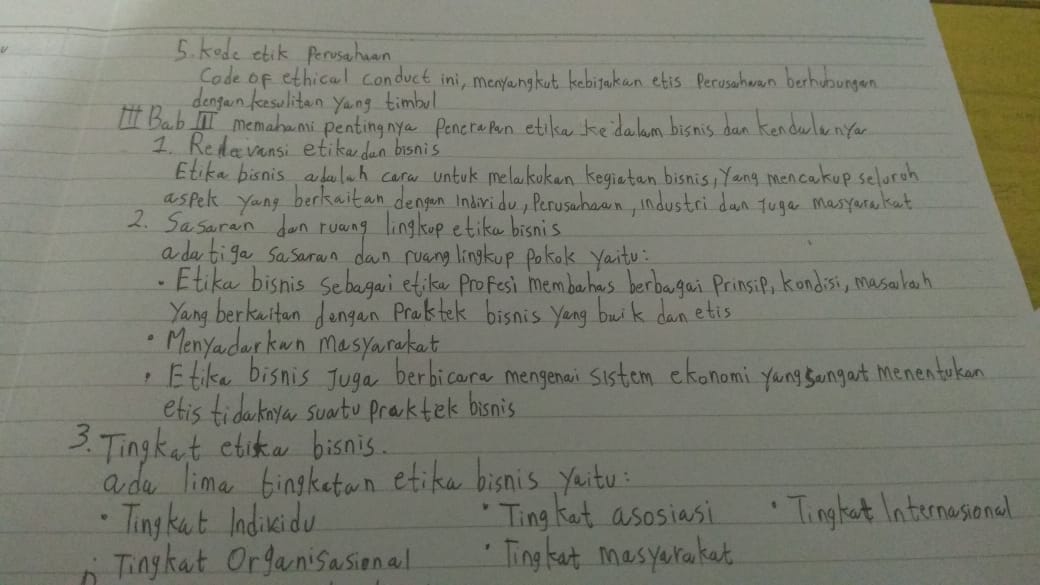 5. Kode etik Perusahaan
Code of ethical conduct ini, menyangkut kebijakan etis Perusahaan berhubungan
dengan kesulitan yang timbul
III Bab III memahami pentingnya Penerapan etika ke dalam bisnis dan kendalanya
1. Relevansi etika dan bisnis
Etika bisnis adalah cara untuk melakukan kegiatan bisnis, Yang mencakup seluruh
aspek yang berkaitan dengan Individu, Perusahaan, industri dan Juga masyarakat
2. Sasaran dan ruang lingkup etika bisnis
ada tiga sasaran dan ruang lingkup Pokok yaitu:
• Etika bisnis sebagai etika Profesi membahas berbagai Prinsip, kondisi, masalah
Yang berkaitan dengan Praktek bisnis yang baik dan etis
• Menyadarkan masyarakat
• Etika bisnis Juga berbicara mengenai sistem ekonomi yang sangat menentukan
etis tidaknya suatu Praktek bisnis
3. Tingkat etika bisnis.
ada lima tingkatan etika bisnis yaitu:
• Tingkat Individu • Tingkat asosiasi • Tingkat Internasional
• Tingkat Organisasional • Tingkat masyarakat